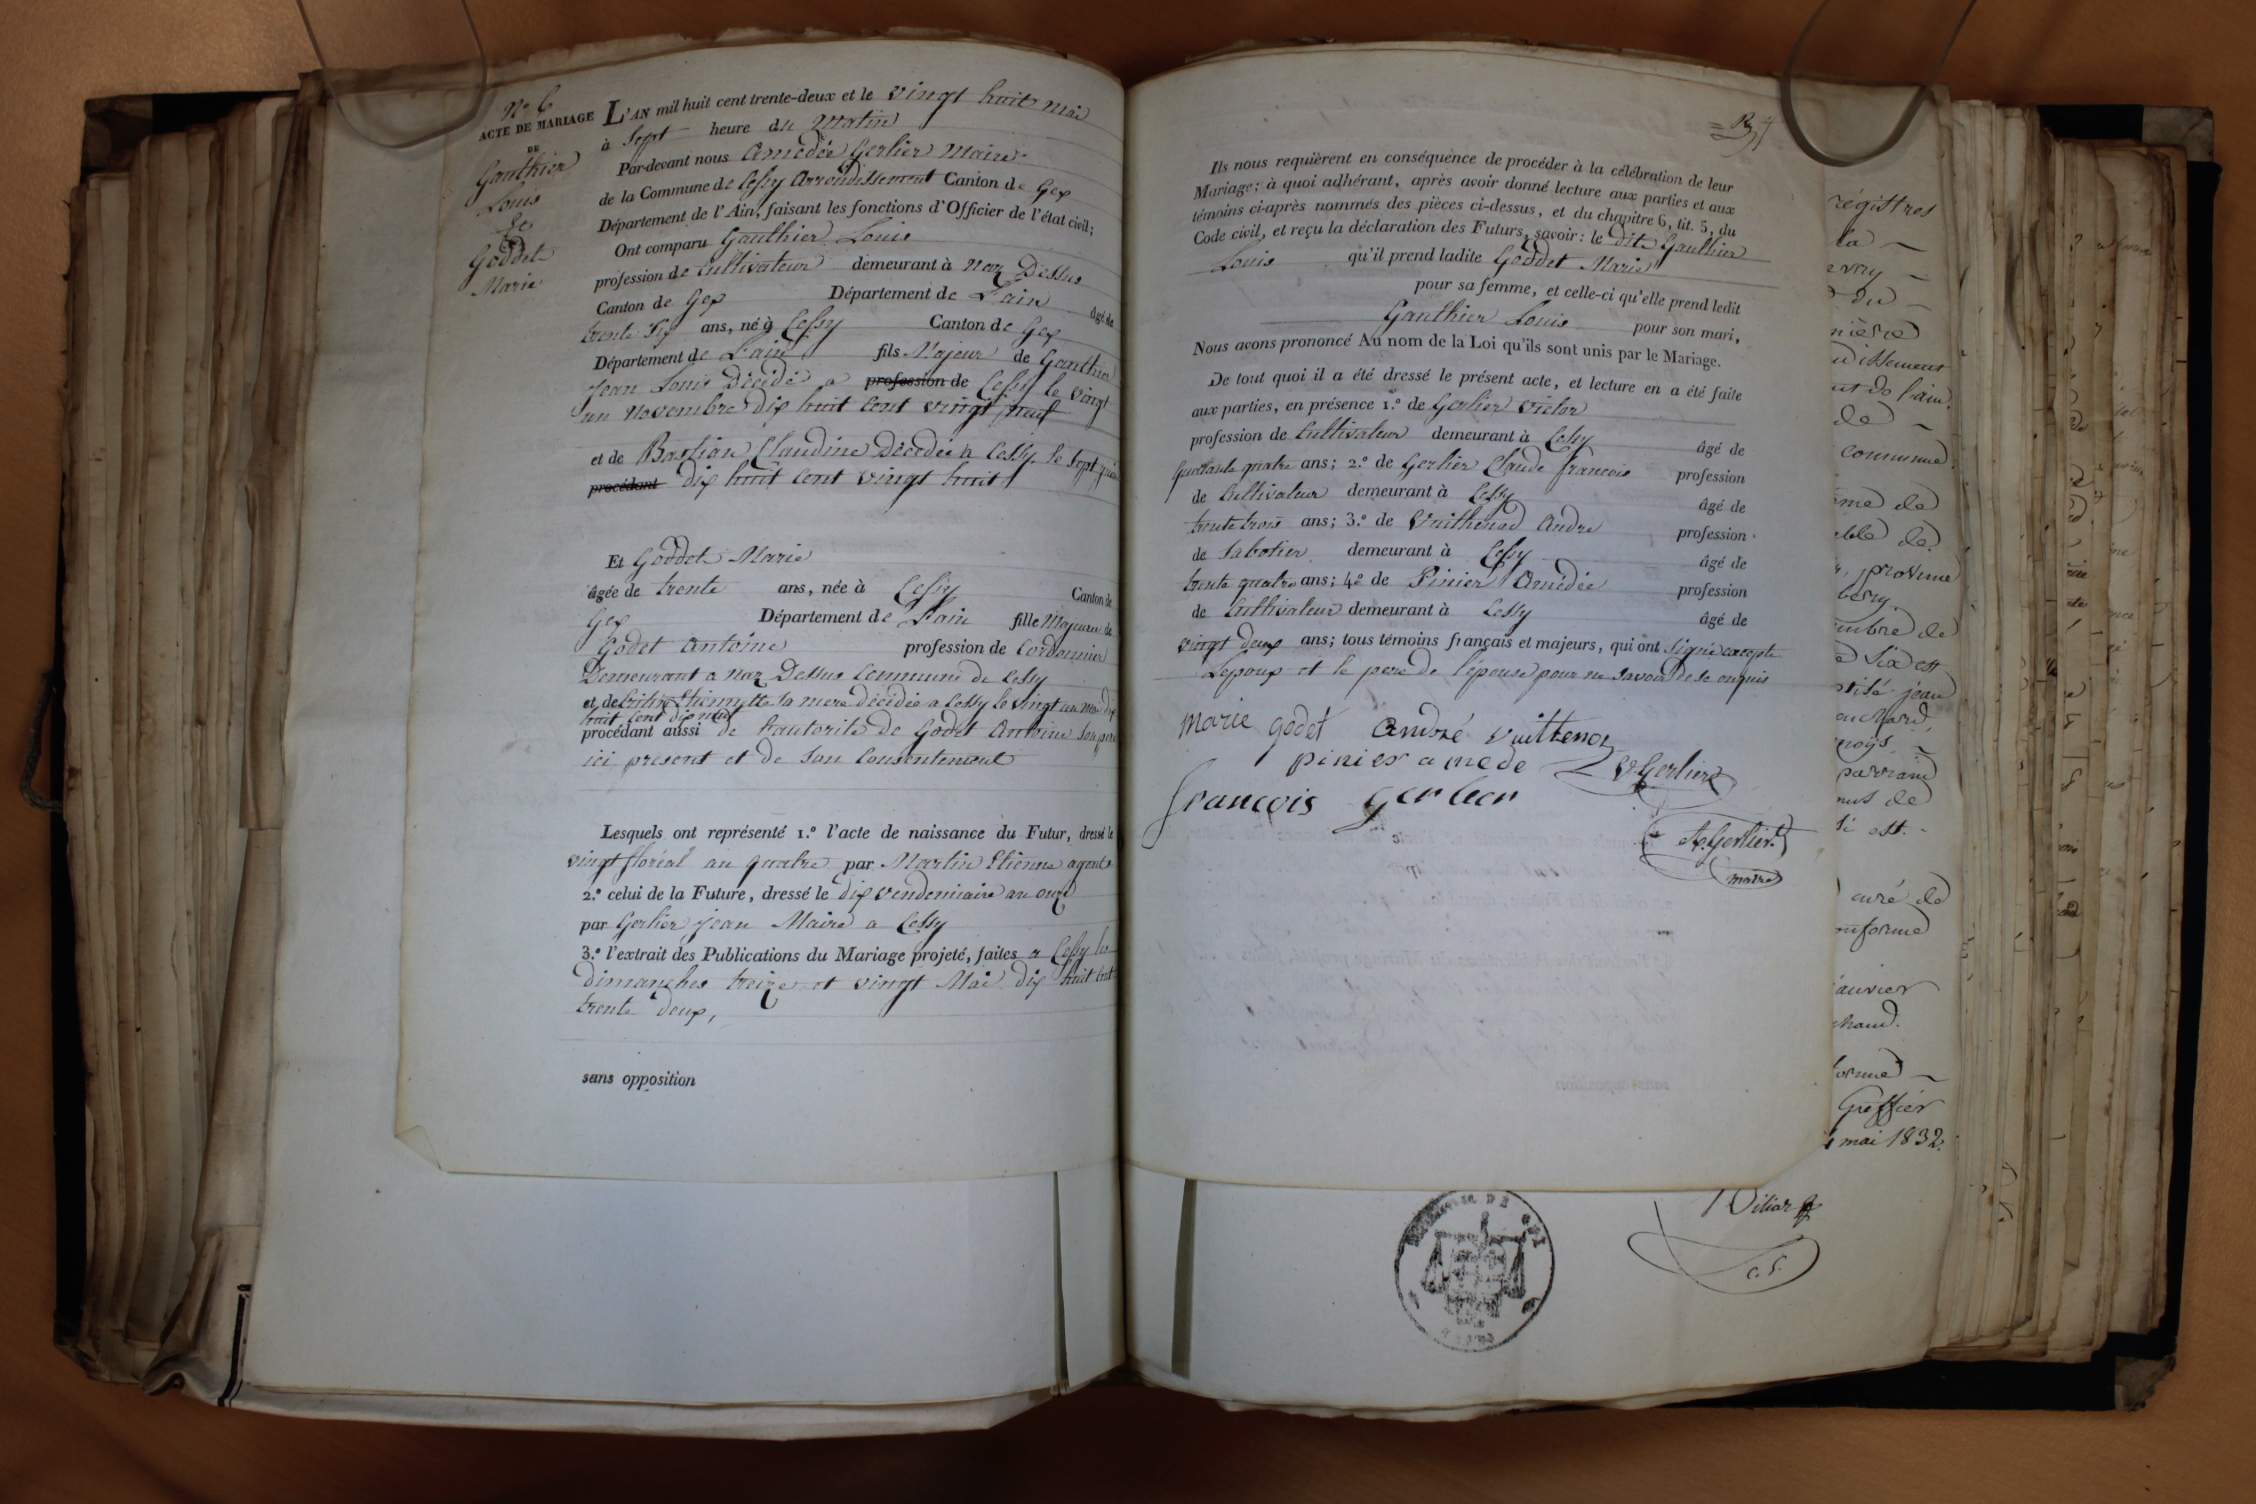 N° 6
ACTE DE MARIAGE
DE
Gauthier
Louis
Et
Goddet
Marie
L'AN mil huit cent trente-deux et le vingt huit mai
à Sept heure du Matin
Par-devant nous Amédée Gerlier Maire
de la Commune de Cessy Arrondissement Canton de Gex
Département de l'Ain, faisant les fonctions d'Officier de l'état civil;
Ont comparu Gauthier Louis
profession de Cultivateur demeurant à Naz Dessus
Canton de Gex Département de L'ain âgé de
trente six ans, né à Cessy Canton de Gex
Département de L'ain fils Majeur de Gauthier
Jean Louis Décédé a profession de Cessy le vingt
un Novembre dix huit cent vingt neuf
et de Bastian Claudine Décédée a Cessy le sept juin
procédant dix huit cent vingt huit
Et Goddet Marie
âgée de trente ans, née à Cessy Canton de
Gex Département de L'ain fille Majeure de
Godet Antoine profession de Cordonnier
Demeurant a Naz Dessus Commune de Cessy
et de Etiennette sa mere décédée a Cessy le vingt un Mai dix
huit cent dix neuf
procédant aussi de l'autorité de Godet Antoine son père
ici present et de son Consentement
Lesquels ont représenté 1.º l'acte de naissance du Futur, dressé le
vingt floréal an quatre par Martin Etienne agent
2.º celui de la Future, dressé le dix vendemiaire an onze
par Gerlier Jean Maire a Cessy
3.º l'extrait des Publications du Mariage projeté, faites a Cessy les
dimanches treize et vingt Mai dix huit cent
trente deux,
sans opposition
Ils nous requièrent en conséquence de procéder à la célébration de leur
Mariage; à quoi adhérant, après avoir donné lecture aux parties et aux
témoins ci-après nommés des pièces ci-dessus, et du chapitre 6, tit. 5, du
Code civil, et reçu la déclaration des Futurs, savoir: le dit Gauthier
Louis qu'il prend ladite Goddet Marie
pour sa femme, et celle-ci qu'elle prend ledit
Gauthier Louis pour son mari,
Nous avons prononcé Au nom de la Loi qu'ils sont unis par le Mariage.
De tout quoi il a été dressé le présent acte, et lecture en a été faite
aux parties, en présence 1.º de Gerlier Victor
profession de Cultivateur demeurant à Cessy âgé de
quarante quatre ans; 2.º de Gerlier Claude francois profession
de Cultivateur demeurant à Cessy âgé de
trente trois ans; 3.º de Vuithenod Andre profession
de Sabotier demeurant à Cessy âgé de
trente quatre ans; 4º de Pinier Amédée profession
de Cultivateur demeurant à Cessy âgé de
vingt deux ans; tous témoins français et majeurs, qui ont signé excepté
L'epoux et le pere de l'épouse pour ne savoir de ce enquis
marie godet andré vuittenoz
pinier amede V Gerlier
francois gerlier
A. Gerlier
maire
régistres
la
du
nière
dissement
nt de l'ain.
de
commune
me de
ble de
mbre de
ptisé jean
parrain
nus de
est.
curé de
nforme
anvier
Greffier
mai 1832.